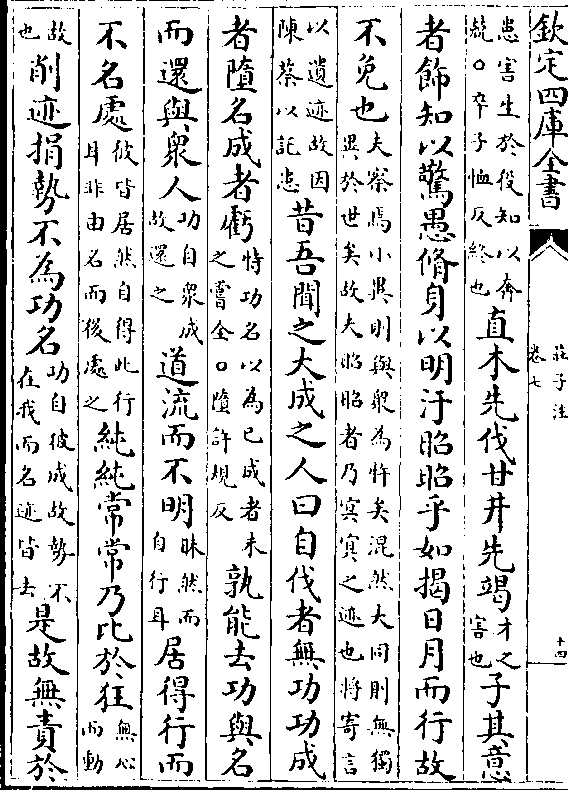 欽定四庫全書
莊子注
卷七
十四
患害生於役知以奔
競○卒子恤反終也
直木先伐甘井先竭
才之
害也
子其意
者飾知以驚愚脩身以明汙昭昭乎如揭日月而行故
不免也
夫察焉小異則與衆為迕矣混然大同則無獨
異於世矣故夫昭昭者乃冥冥之迹也將寄言
以遺迹故因
陳蔡以託患
昔吾聞之大成之人曰自伐者無功功成
者墮名成者虧
恃功名以為已成者未
之嘗全○墮許規反
孰能去功與名
而還與衆人
功自衆成
故還之
道流而不明
昧然而
自行耳
居得行而
不名處
彼皆居然自得此行
耳非由名而後處之
純純常常乃比於狂
無心
而動
故
也
削迹捐勢不為功名
功自彼成故勢不
在我而名迹皆去
是故無責於